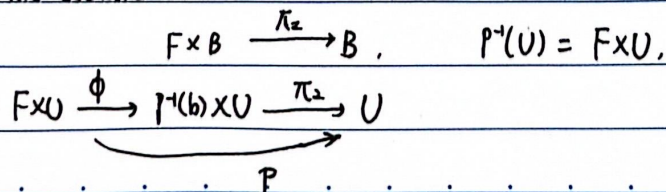 F×B --π₂--> B, p⁻¹(U) = F×U,
F×U --ϕ--> p⁻¹(b)×U --π₂--> U
P